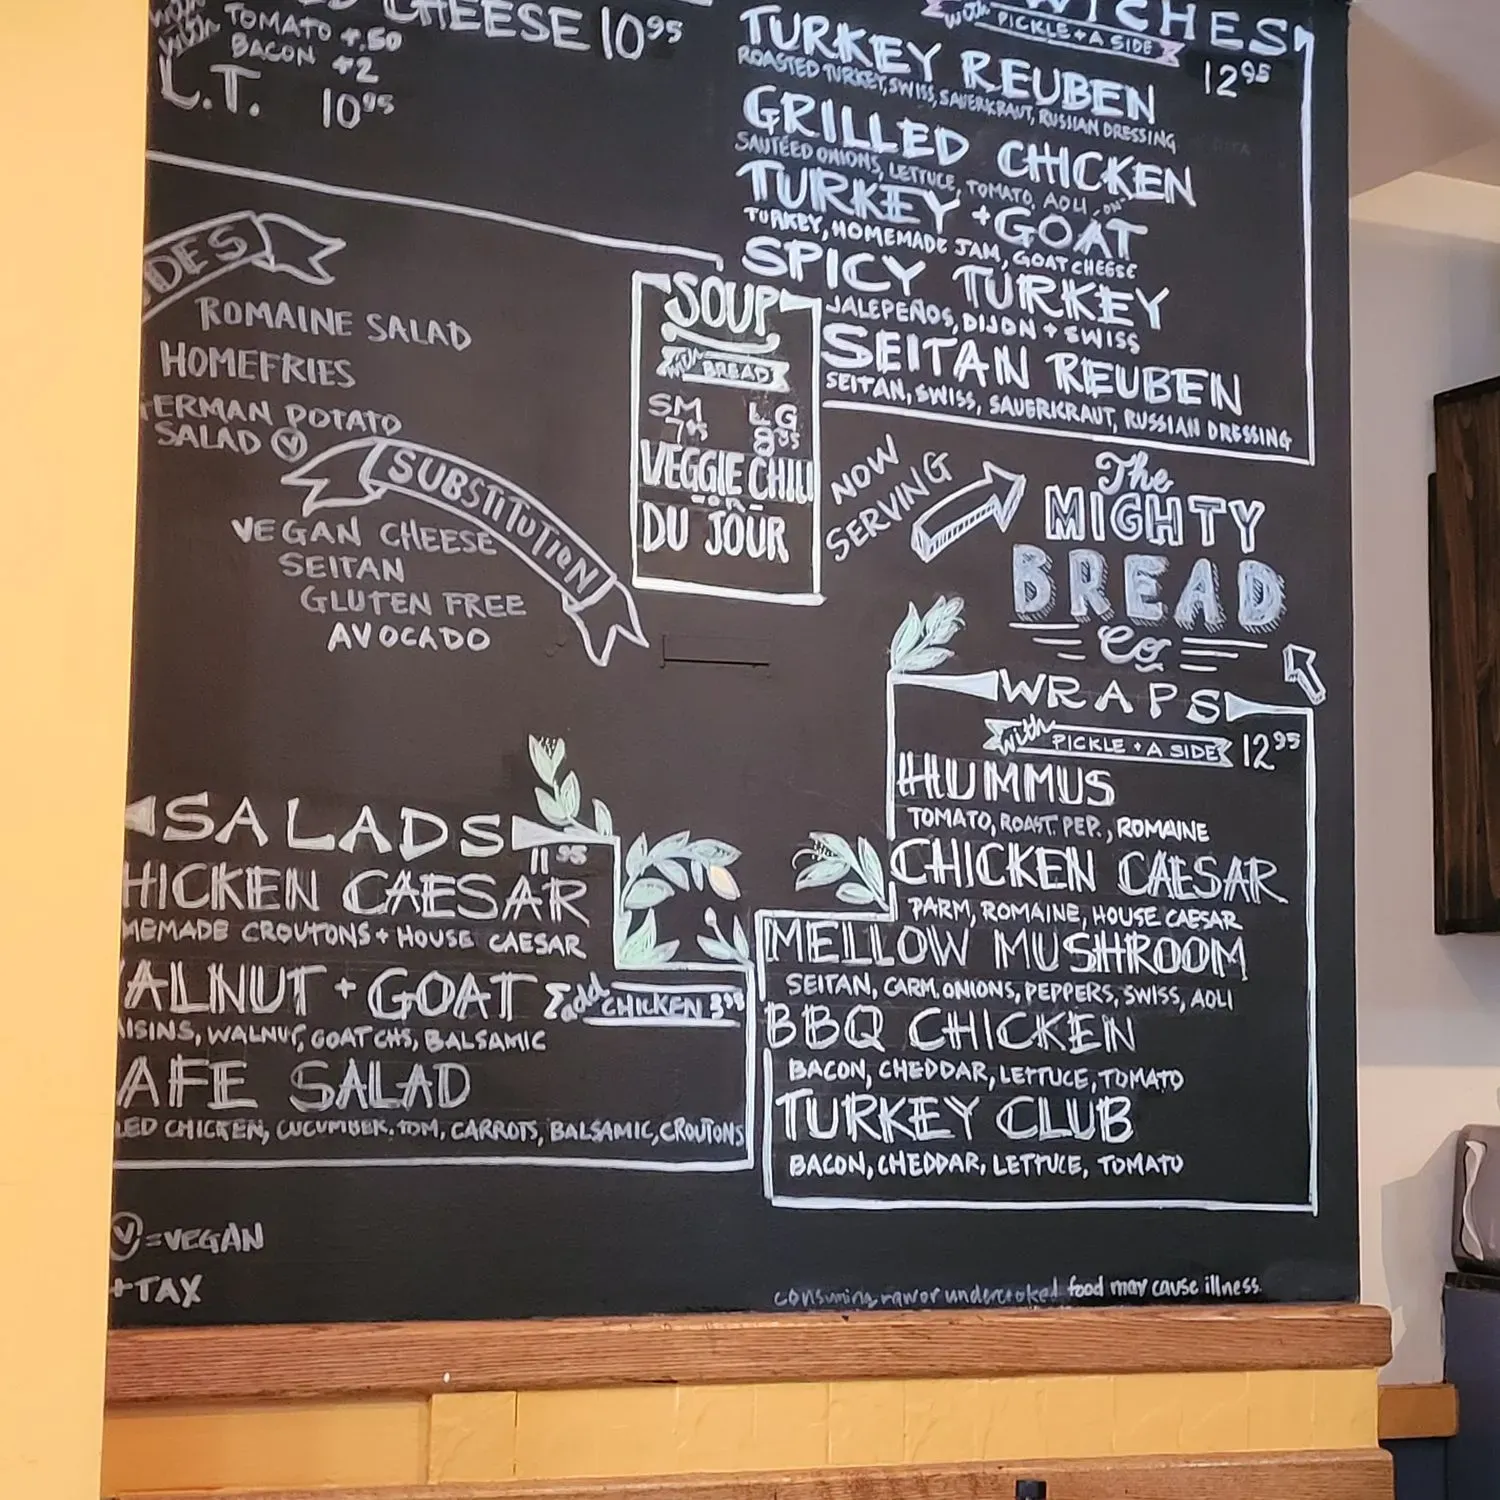 TOMATO +.50
BACON +2
L.T. 10.95
CHEESE 10.95
DES
ROMAINE SALAD
HOMEFRIES
ERMAN POTATO
SALAD Ⓥ
SUBSTITUTION
VEGAN CHEESE
SEITAN
GLUTEN FREE
AVOCADO
SOUP
with BREAD
SM LG
7.95 8.95
VEGGIE CHILI
-OR-
DU JOUR
WICHES
with PICKLE + A SIDE
12.95
TURKEY REUBEN
ROASTED TURKEY, SWISS, SAUERKRAUT, RUSSIAN DRESSING
GRILLED CHICKEN
SAUTÉED ONIONS, LETTUCE, TOMATO, AOLI
TURKEY + GOAT
TURKEY, HOMEMADE JAM, GOAT CHEESE
SPICY TURKEY
JALEPEÑOS, DIJON + SWISS
SEITAN REUBEN
SEITAN, SWISS, SAUERKRAUT, RUSSIAN DRESSING
NOW
SERVING
The
MIGHTY
BREAD
Co
WRAPS
with PICKLE + A SIDE 12.95
HUMMUS
TOMATO, ROAST. PEP., ROMAINE
CHICKEN CAESAR
PARM, ROMAINE, HOUSE CAESAR
MELLOW MUSHROOM
SEITAN, CARM. ONIONS, PEPPERS, SWISS, AOLI
BBQ CHICKEN
BACON, CHEDDAR, LETTUCE, TOMATO
TURKEY CLUB
BACON, CHEDDAR, LETTUCE, TOMATO
SALADS
11.95
HICKEN CAESAR
MEMADE CROUTONS + HOUSE CAESAR
ALNUT + GOAT
add CHICKEN 3.95
ISINS, WALNUT, GOAT CHS, BALSAMIC
AFE SALAD
LED CHICKEN, CUCUMBER, TOM, CARROTS, BALSAMIC, CROUTONS
Ⓥ = VEGAN
+TAX
consuming raw or undercooked food may cause illness.